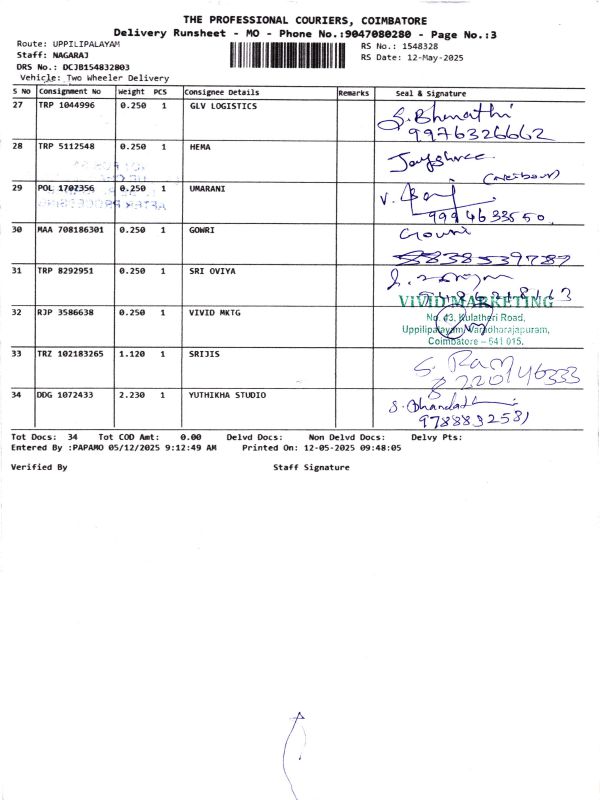 THE PROFESSIONAL COURIERS, COIMBATORE
Delivery Runsheet - MO - Phone No.:9047080280 - Page No.:3
Route: UPPILIPALAYAM
Staff: NAGARAJ
DRS No.: DCJB154832803
Vehicle: Two Wheeler Delivery
RS No.: 1548328
RS Date: 12-May-2025
S No Consignment No Weight PCS Consignee Details Remarks Seal & Signature
27 TRP 1044996 0.250 1 GLV LOGISTICS S. Bharathi
9976326662
28 TRP 5112548 0.250 1 HEMA Jayshree
29 POL 1707356 0.250 1 UMARANI V.
9994633550
30 MAA 708186301 0.250 1 GOWRI Gowri
8838539789
31 TRP 8292951 0.250 1 SRI OVIYA
32 RJP 3586638 0.250 1 VIVID MKTG VIVID MARKETING
No. 43, Kulatheri Road,
Uppilipalayam, Varadharajapuram,
Coimbatore - 641 015.
33 TRZ 102183265 1.120 1 SRIJIS S. Ram
8220146333
34 DDG 1072433 2.230 1 YUTHIKHA STUDIO
9788832581
Tot Docs: 34 Tot COD Amt: 0.00 Delvd Docs: Non Delvd Docs: Delvy Pts:
Entered By :PAPAMO 05/12/2025 9:12:49 AM Printed On: 12-05-2025 09:48:05
Verified By Staff Signature